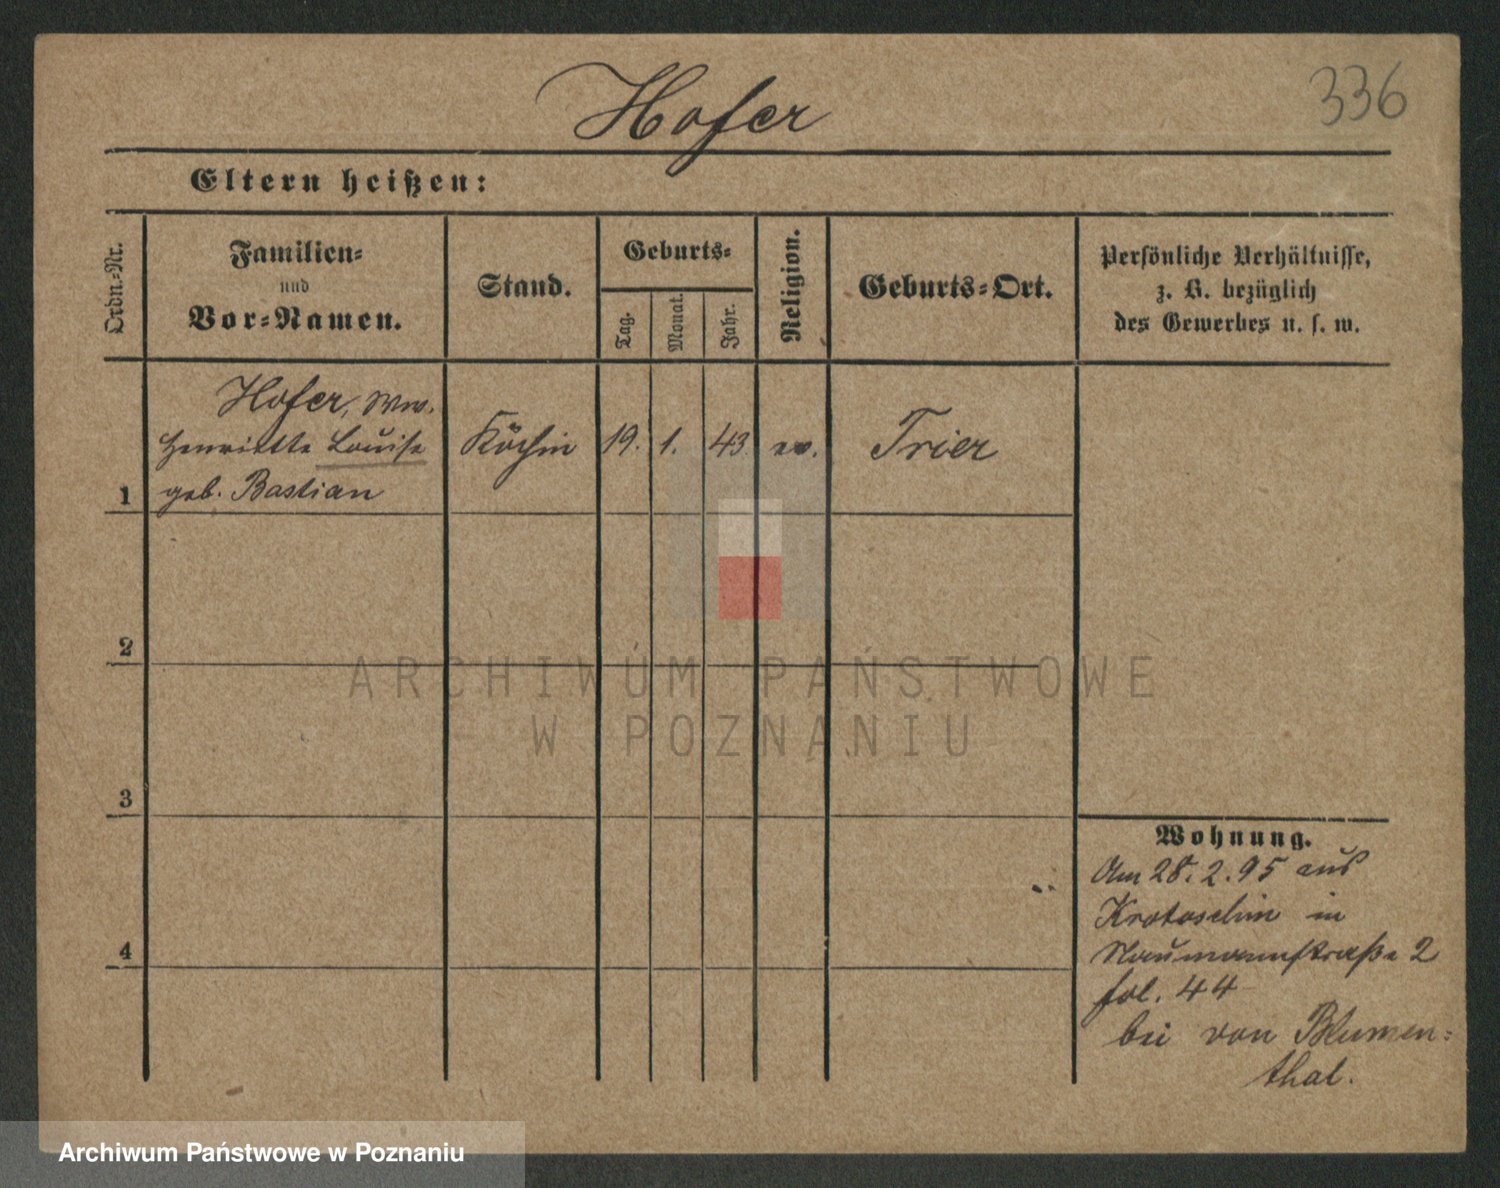 Hofer
336
Eltern heißen:
Ordn.-Nr.
Familien-
und
Vor-Namen.
Stand.
Geburts-
Tag.
Monat.
Jahr.
Religion.
Geburts-Ort.
Persönliche Verhältnisse,
z. B. bezüglich
des Gewerbes u. s. w.
Hofer, Ww.
Henriette Louise
geb. Bastian
Köchin
19.
1.
43
ev.
Trier
1
2
3
4
ARCHIWUM PAŃSTWOWE
W POZNANIU
Wohnung.
Am 28.2.95 aus
Krotoschin in
Naumannstraße 2
fol. 44
bei von Blumen-
thal.
Archiwum Państwowe w Poznaniu